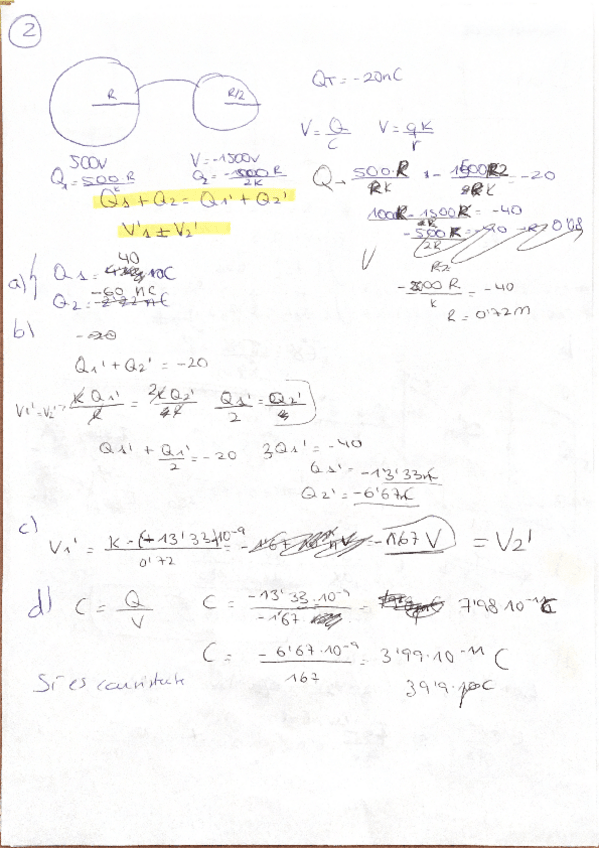 2
R
R/2
QT = -20nC
V = Q/C    V = qk/r
500V    V = -1500V
Q1 = 500·R/k    Q2 = -1500 R/2k
Q1 + Q2 = Q1' + Q2'
V'1 = V2'
Q → 500·R/k + -1500R/2k = -20
1000R - 1500R = -40
-500R/2k
-500 R/k = -40
R = 0'72m
a) Q1 = 40 nC
Q2 = -60 nC
b)
Q1' + Q2' = -20
V1' = V2' → kQ1'/R = 2kQ2'/R    Q1'/2 = Q2'
Q1' + Q1'/2 = -20    3Q1' = -40
Q1' = -13'33nC
Q2' = -6'67nC
c)
V1' = k·(-13'33)10^-9/0'72 = -167 V = V2'
d) C = Q/V    C = -13'33·10^-9/-167 = 7'98·10^-11 C
C = -6'67·10^-9/167 = 3'99·10^-11 C
Sí es consistente    39'9·pC